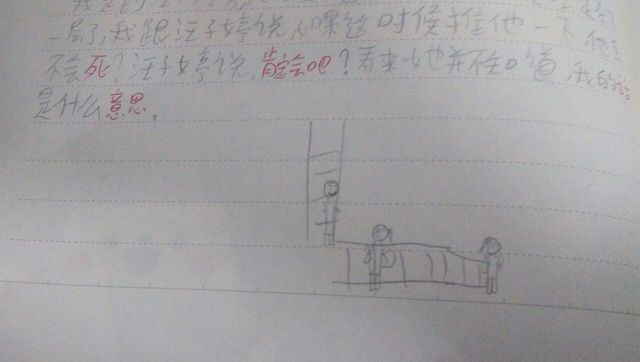 一层了,我跟汪子婷说,如果这时候推他一下他会
不会死?汪子婷说,肯定会吧?看来她并不知道,我的话
是什么意思。